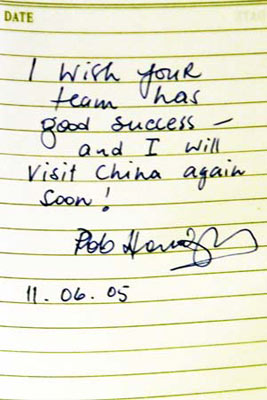 DATE
I wish your
team has
good success –
and I will
visit China again
soon!
Rob
11.06.05